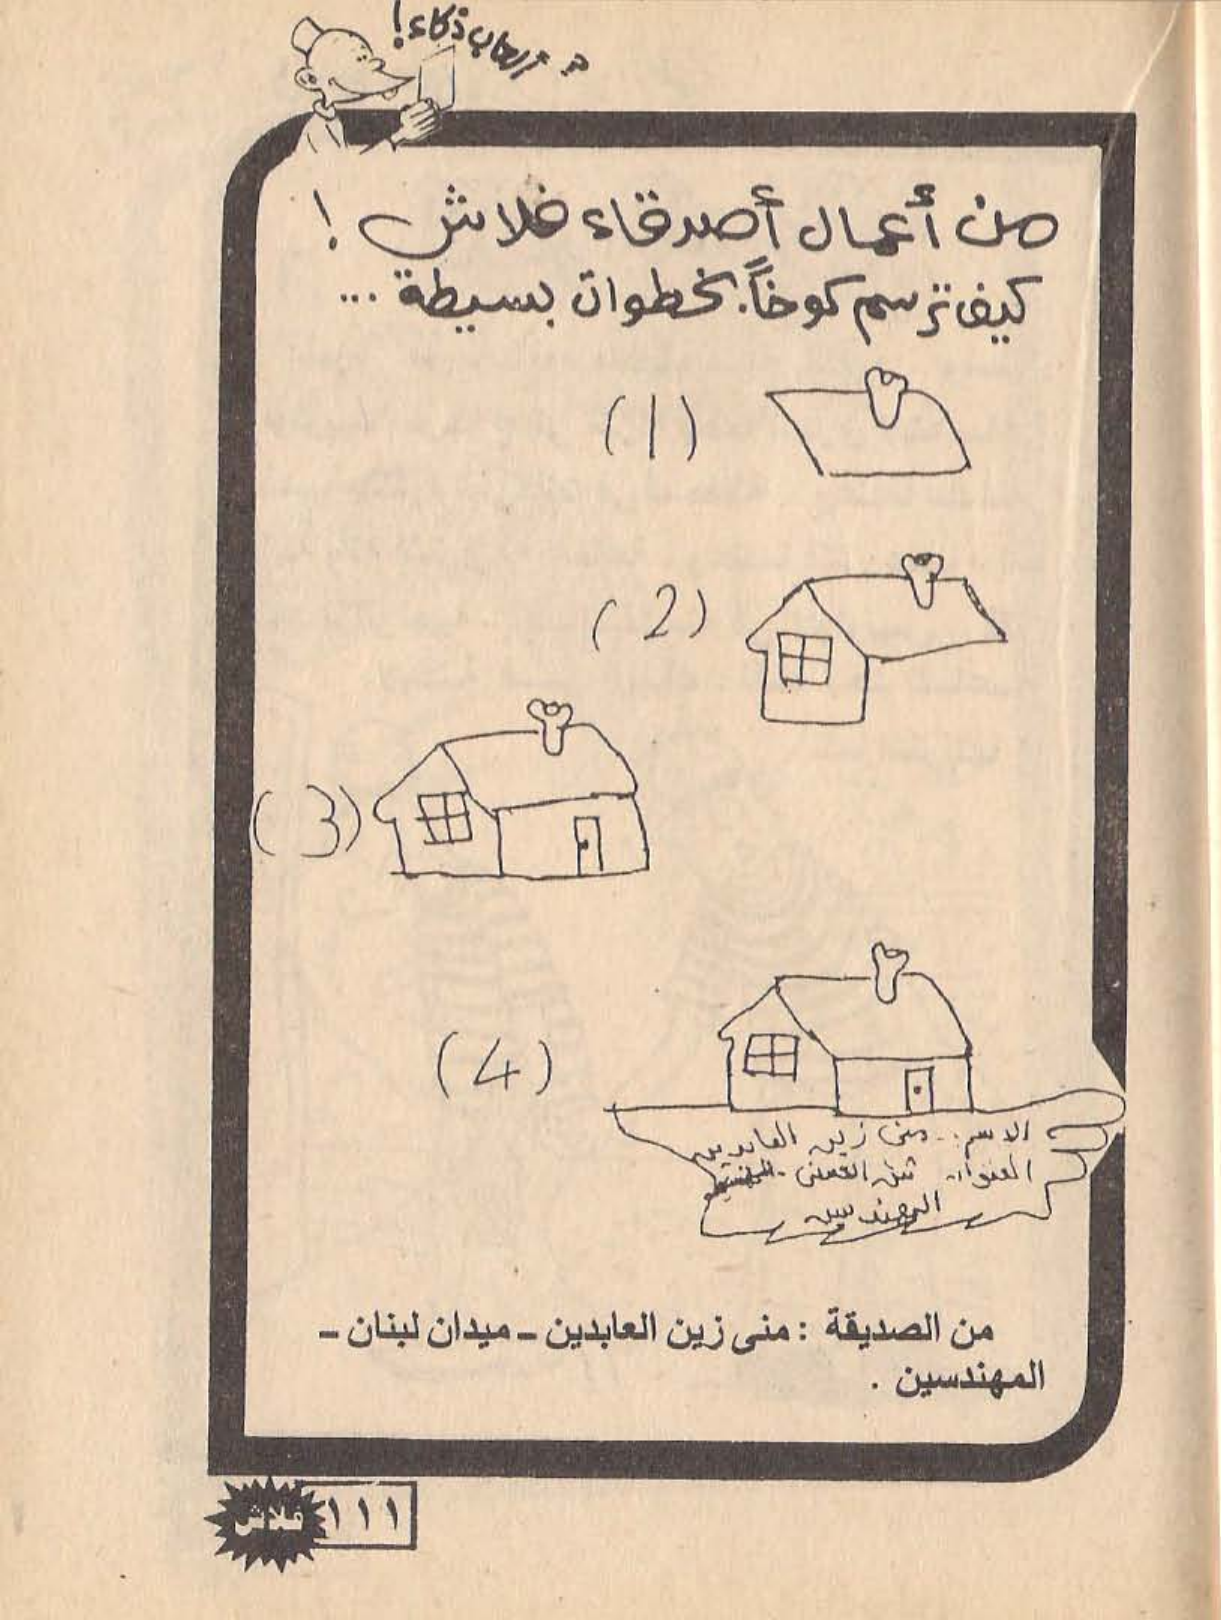 ألعاب ذكاء!
من أعمال أصدقاء فلاش !
كيف ترسم كوخاً. بخطوات بسيطة ...
(1)
(2)
(3)
(4)
الاسم:. منى زين العابدين
العنوان
المهندسين
من الصديقة : منى زين العابدين - ميدان لبنان -
المهندسين .
١١١ فلاش